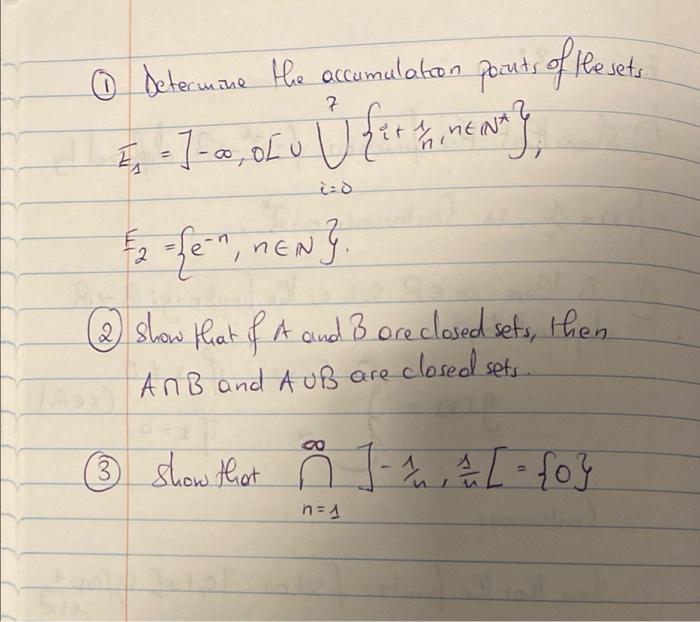 ① Determine the accumulation points of the sets
E₁ = ]-∞, 0[ ∪ ⋃_{i=0}^{7} {i + 1/n, n ∈ ℕ*};
E₂ = {e⁻ⁿ, n ∈ ℕ}.
② Show that if A and B are closed sets, then
A∩B and A∪B are closed sets.
③ Show that ⋂_{n=1}^{∞} ]-1/n, 1/n[ = {0}